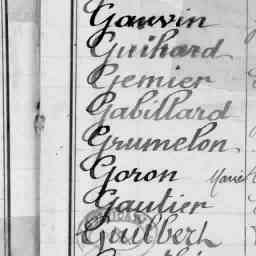 Gauvin
Guihard
Gemier
Gabillard
Grumelon
Goron Marie
Gautier
Guilbert